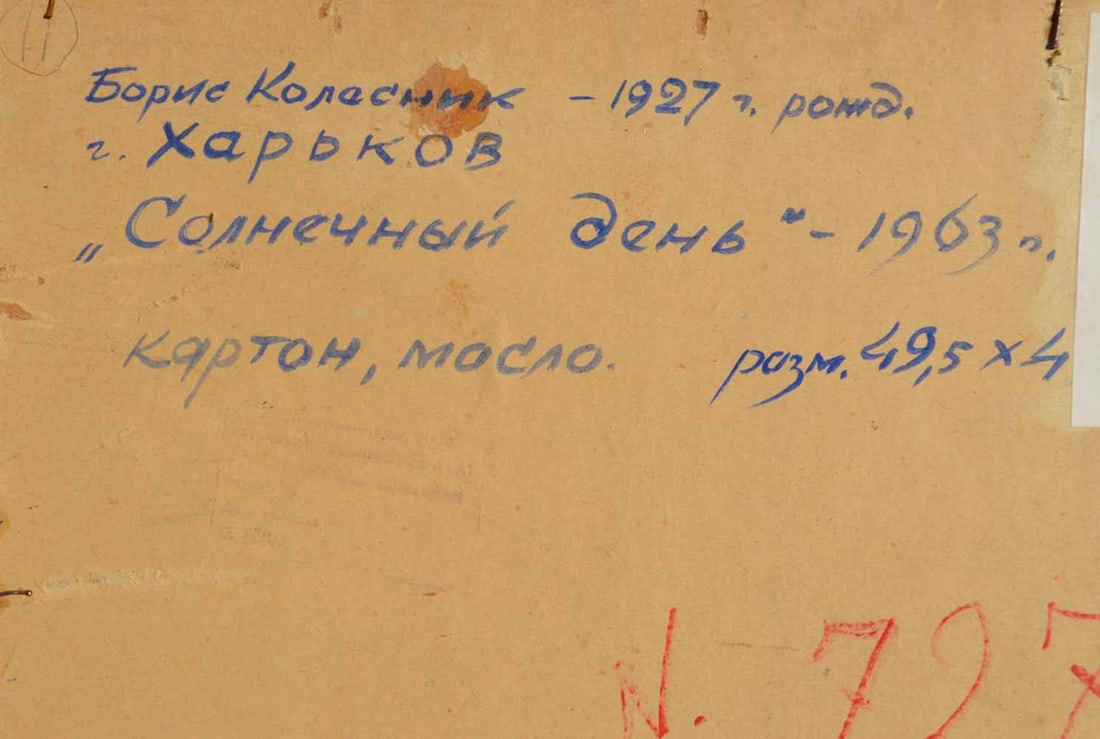 11
Борис Коласник - 1927 г. рожд.
г. Харьков
„Солнечный день" - 1963 г.
картон, масло. разм. 49,5 × 4
N. 797